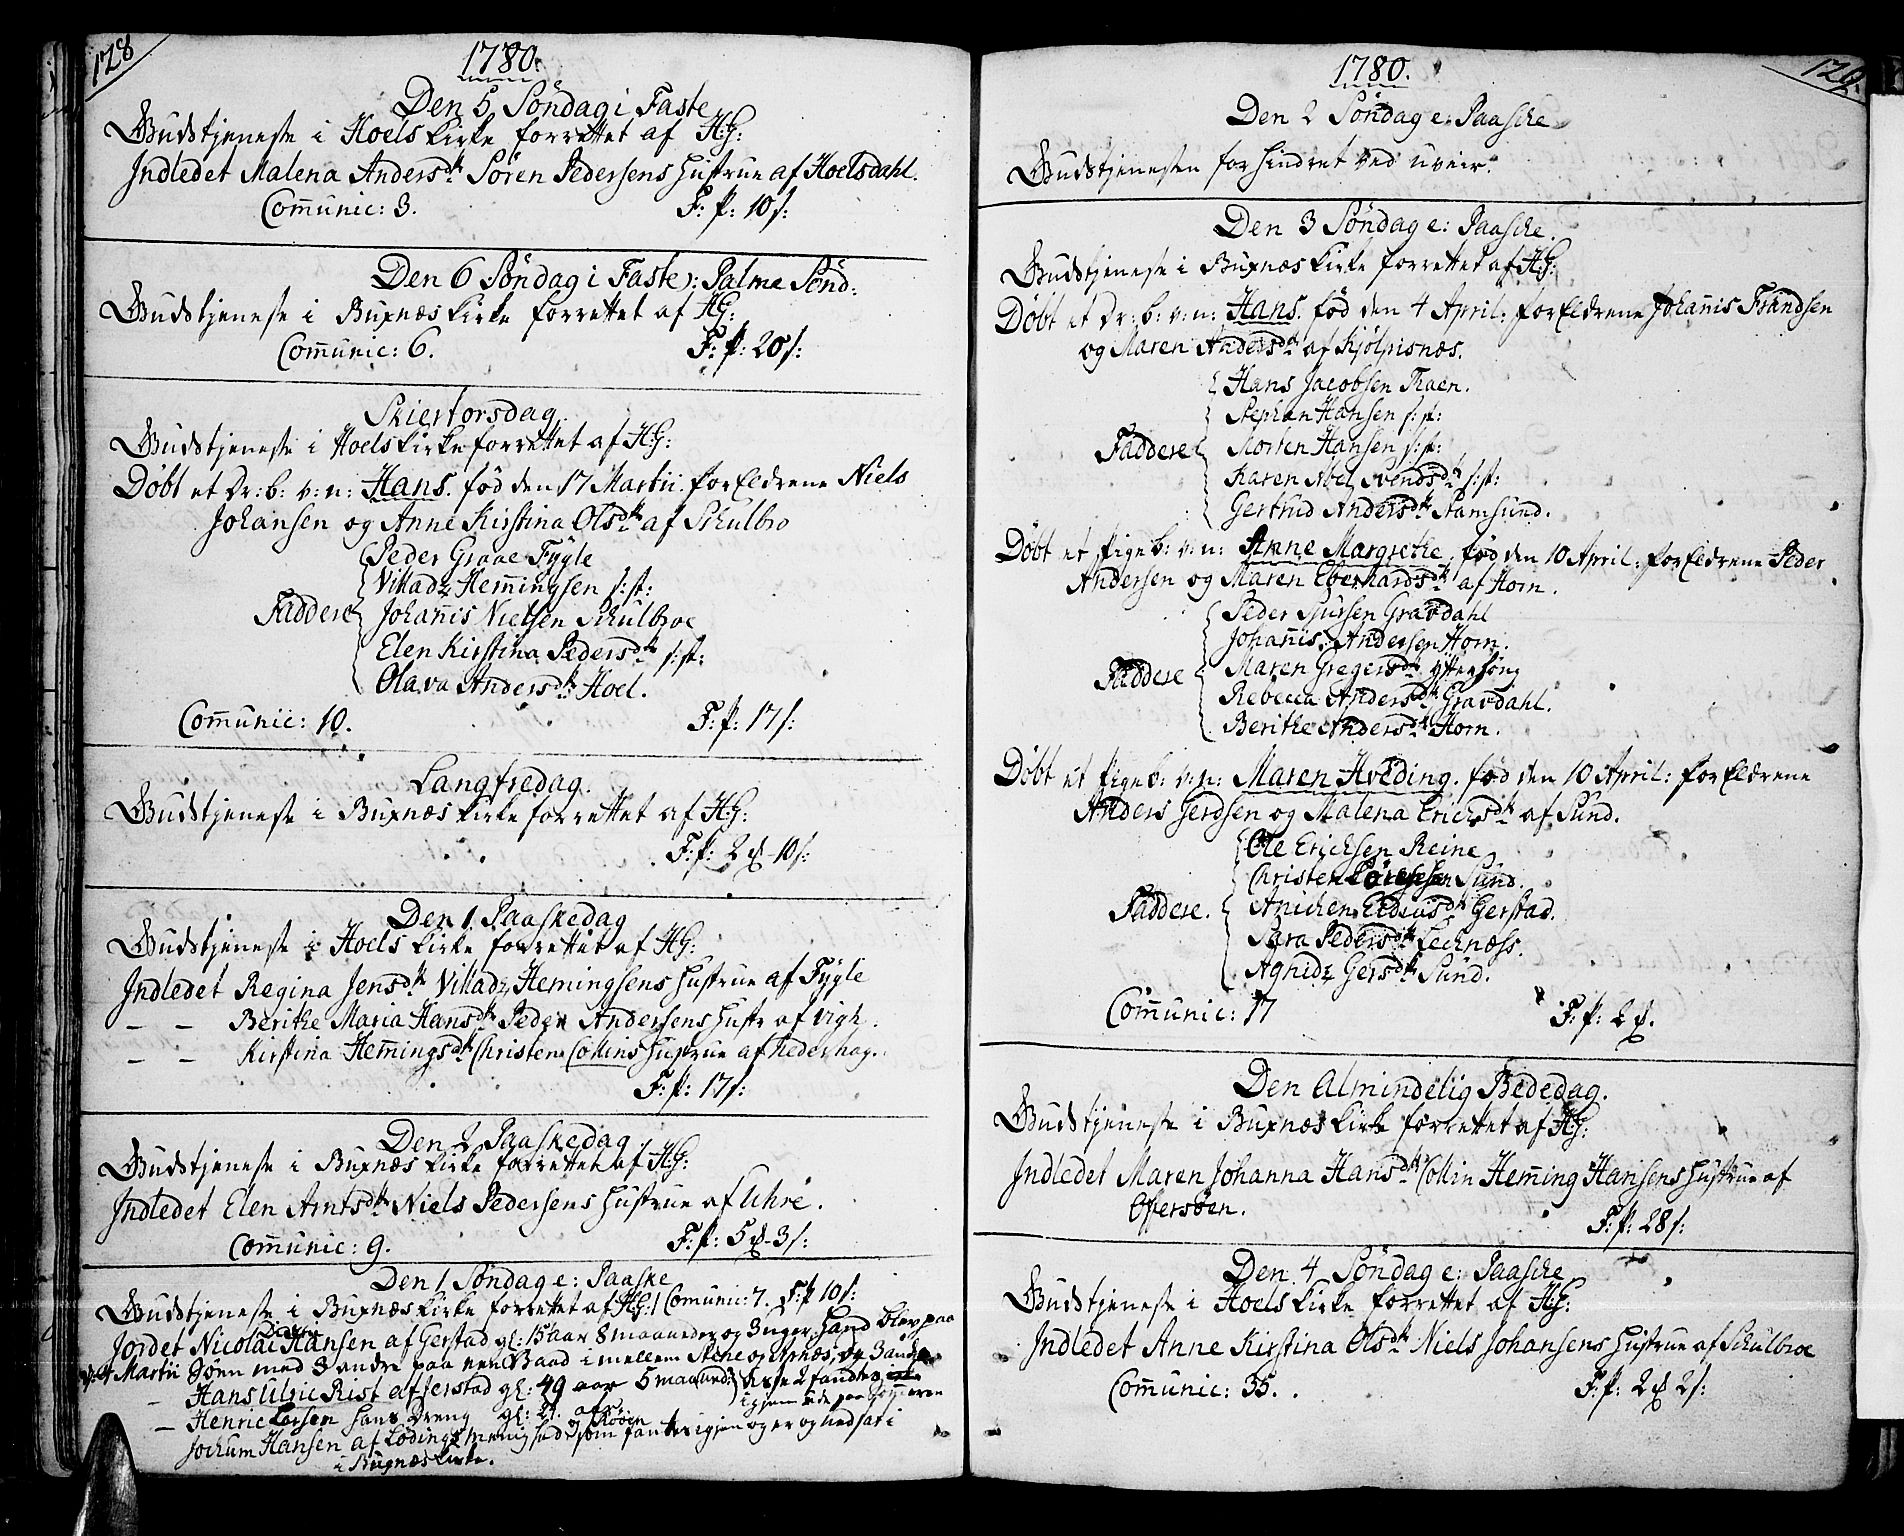 128
1780.
Den 5 Søndag i Faste
Gudstjeneste i Hoels kirke forrettet af H:G:
Indledet Malena Andersdtr Søren Pedersens Hustrue af Hoelsdahl.
Comunic: 3. F: p: 10 s:
Den 6 Søndag i Faste ɔ: Palme Sønd:
Gudstjeneste i Buxnæs kirke forrettet af H:G:
Comunic: 6. F: p: 20 s:
Skiertorsdag.
Gudstjeneste i Hoels kirke forrettet af H:G:
Døbt et dr: b: v: n: Hans. fød den 17 Martii. forEldrene Niels
Johansen og Anne Kirstina Olsdtr af Schulbro
Peder Graae Fygle
Villadz Hemingsen s: st:
Faddere Johannis Nielsen Schulbroe
Elen Kirstina Pedersdtr s: st:
Olava Andersdtr Hoel.
Comunic: 10. F: p: 17 s:
Langfredag.
Gudstjeneste i Buxnæs kirke forrettet af H:G:
F: p: 2 d 10 s:
Den 1 Paaskedag
Gudstjeneste i Hoels kirke forrettet af H:G:
Indledet Regina Jensdtr Villadz Hemingsens Hustrue af Fygle
– – Berithe Maria Hansdtr Peder Andersens Hustr af Vigh.
– – Kirstina Hemingsdtr Christen Collins Hustrue af Lederhag.
F: p: 17 s:
Den 2 Paaskedag
Gudstjeneste i Buxnæs kirke forrettet af H:G:
Indledet Elen Arntsdtr Niels Pedersens Hustrue af Uhre.
Comunic: 9. F: p: 5 d 3 s:
Den 1 Søndag e: Paaske
Gudstjeneste i Buxnæs kirke forrettet af H:G: Comunic: 7. F: p 10 s:
Jordet Nicolai Hansen af Gerstad gl: 15 aar 8 maaneder og 3 uger, hand blev paa
Martii Søen med 3 andre paa een Baad i mellem Stene og
Hans Ulric Rist af Jerstad gl: 49 aar 5 maaned: disse 2 fandtes
– Henric Larsen hans Dreng gl: 21 aar igjem
Jochum Hansen af Lødings menighed som fantes igjen og er og nedsat i
i Buxnæs kirke.
129.
1780.
Den 2 Søndag e: Paasche
Gudstjenesten forhindret ved uveir.
Den 3 Søndag e: Paasche.
Gudstjeneste i Buxnæs kirke forrettet af H:G:
Døbt et dr: b: v: n: Hans. fød den 4 April: forEldrene Johannis Frandsen
og Maren Andersdtr af Kjølpisnæs.
Hans Jacobsen Thaen.
Stephan Hansen s: st:
Faddere Morten Hansen s: st:
Karen Abel Svendsdtr s: st:
Gertrud Andersdtr Stamsund.
Døbt et Pigeb: v: n: Anne Margrethe. fød den 10 April: forEldrene Peder
Andersen og Maren Eberhardsdtr af Horn.
Peder Sjursen Gravdahl
Johannis Andersen Horn.
Faddere Maren Gregersdtr
Rebecca Andersdtr Gravdahl.
Berithe Andersdtr Horn.
Døbt et Pigeb: v: n: Maren Hveding. fød den 10 April: forEldrene
Anders Gerdsen og Malena Erichsdtr af Sund.
Ole Erichsen Reine
Christen Sund.
Faddere. Anichen Gerstad.
Sara Pedersdtr Lechnæss.
Agnidz Gersdtr Sund.
Comunic: 17 F: p: 2 d.
Den Almindelig Bededag.
Gudstjeneste i Buxnæs kirke forrettet af H:G:
Indledet Maren Johanna Hansdtr Collin Heming Hansens Hustrue af
Offersøen. F: p: 28 s:
Den 4 Søndag e: Paasche
Gudstjeneste i Hoels kirke forrettet af H:G:
Indledet Anne Kirstina Olsdtr Niels Johansens Hustrue af Schulbroe
Comunic: 35. F: p: 2 d 2 s: